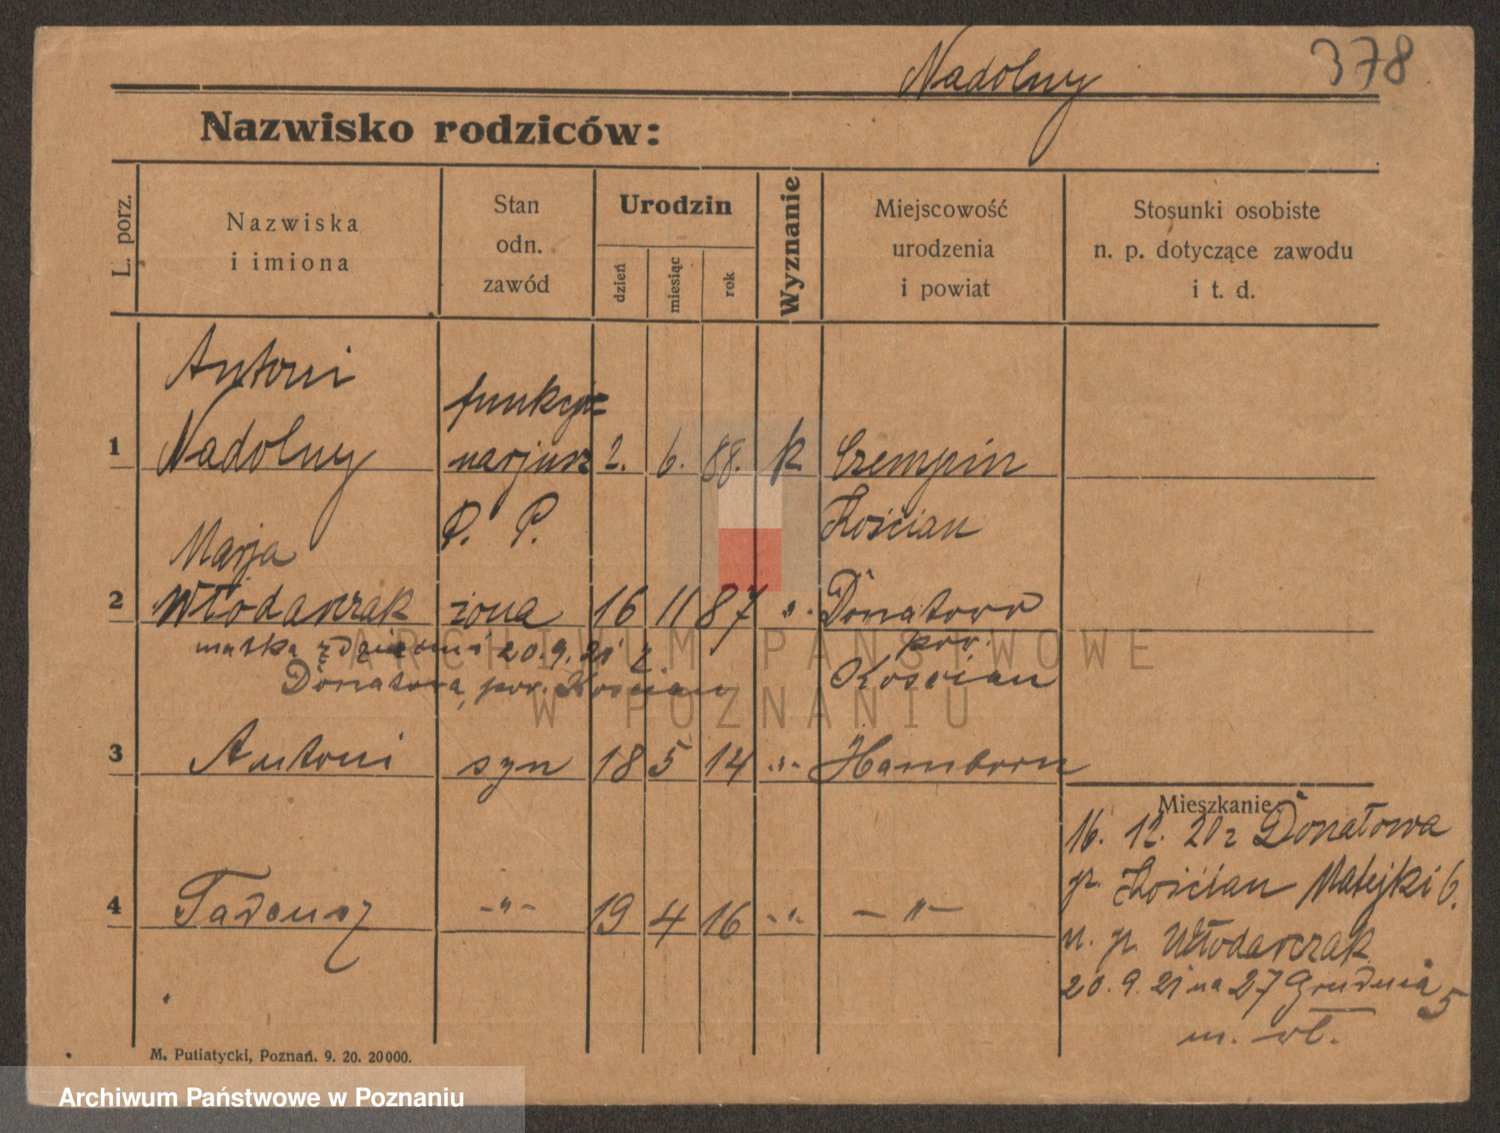 Nadolny
378
Nazwisko rodziców:
L. porz.
Nazwiska
i imiona
Stan
odn.
zawód
Urodzin
dzień
miesiąc
rok
Wyznanie
Miejscowość
urodzenia
i powiat
Stosunki osobiste
n. p. dotyczące zawodu
i t. d.
1
Antoni
Nadolny
funkcjo=
narjusz
P. P.
2. 6. 88. k
Czempin
Kościan
2
Marja
Włodarczak
żona
16 11 87 "
Donatowo
pow.
Kościan
matka z dziećmi 20.9.21 z
Donatowa, pow. Kościan
3
Antoni
syn
18 5 14 -"-
Hamborn
4
Tadeusz
-"-
19 4 16 -"-
-"-
Mieszkanie:
16. 12. 20 z Donatowa
p. Kościan Matejki 6.
u. p. Włodarczak
20. 9. 21 na 27 Grudnia 5
m. wł.
M. Putiatycki, Poznań. 9. 20. 20000.
ARCHIWUM PAŃSTWOWE
W POZNANIU
Archiwum Państwowe w Poznaniu